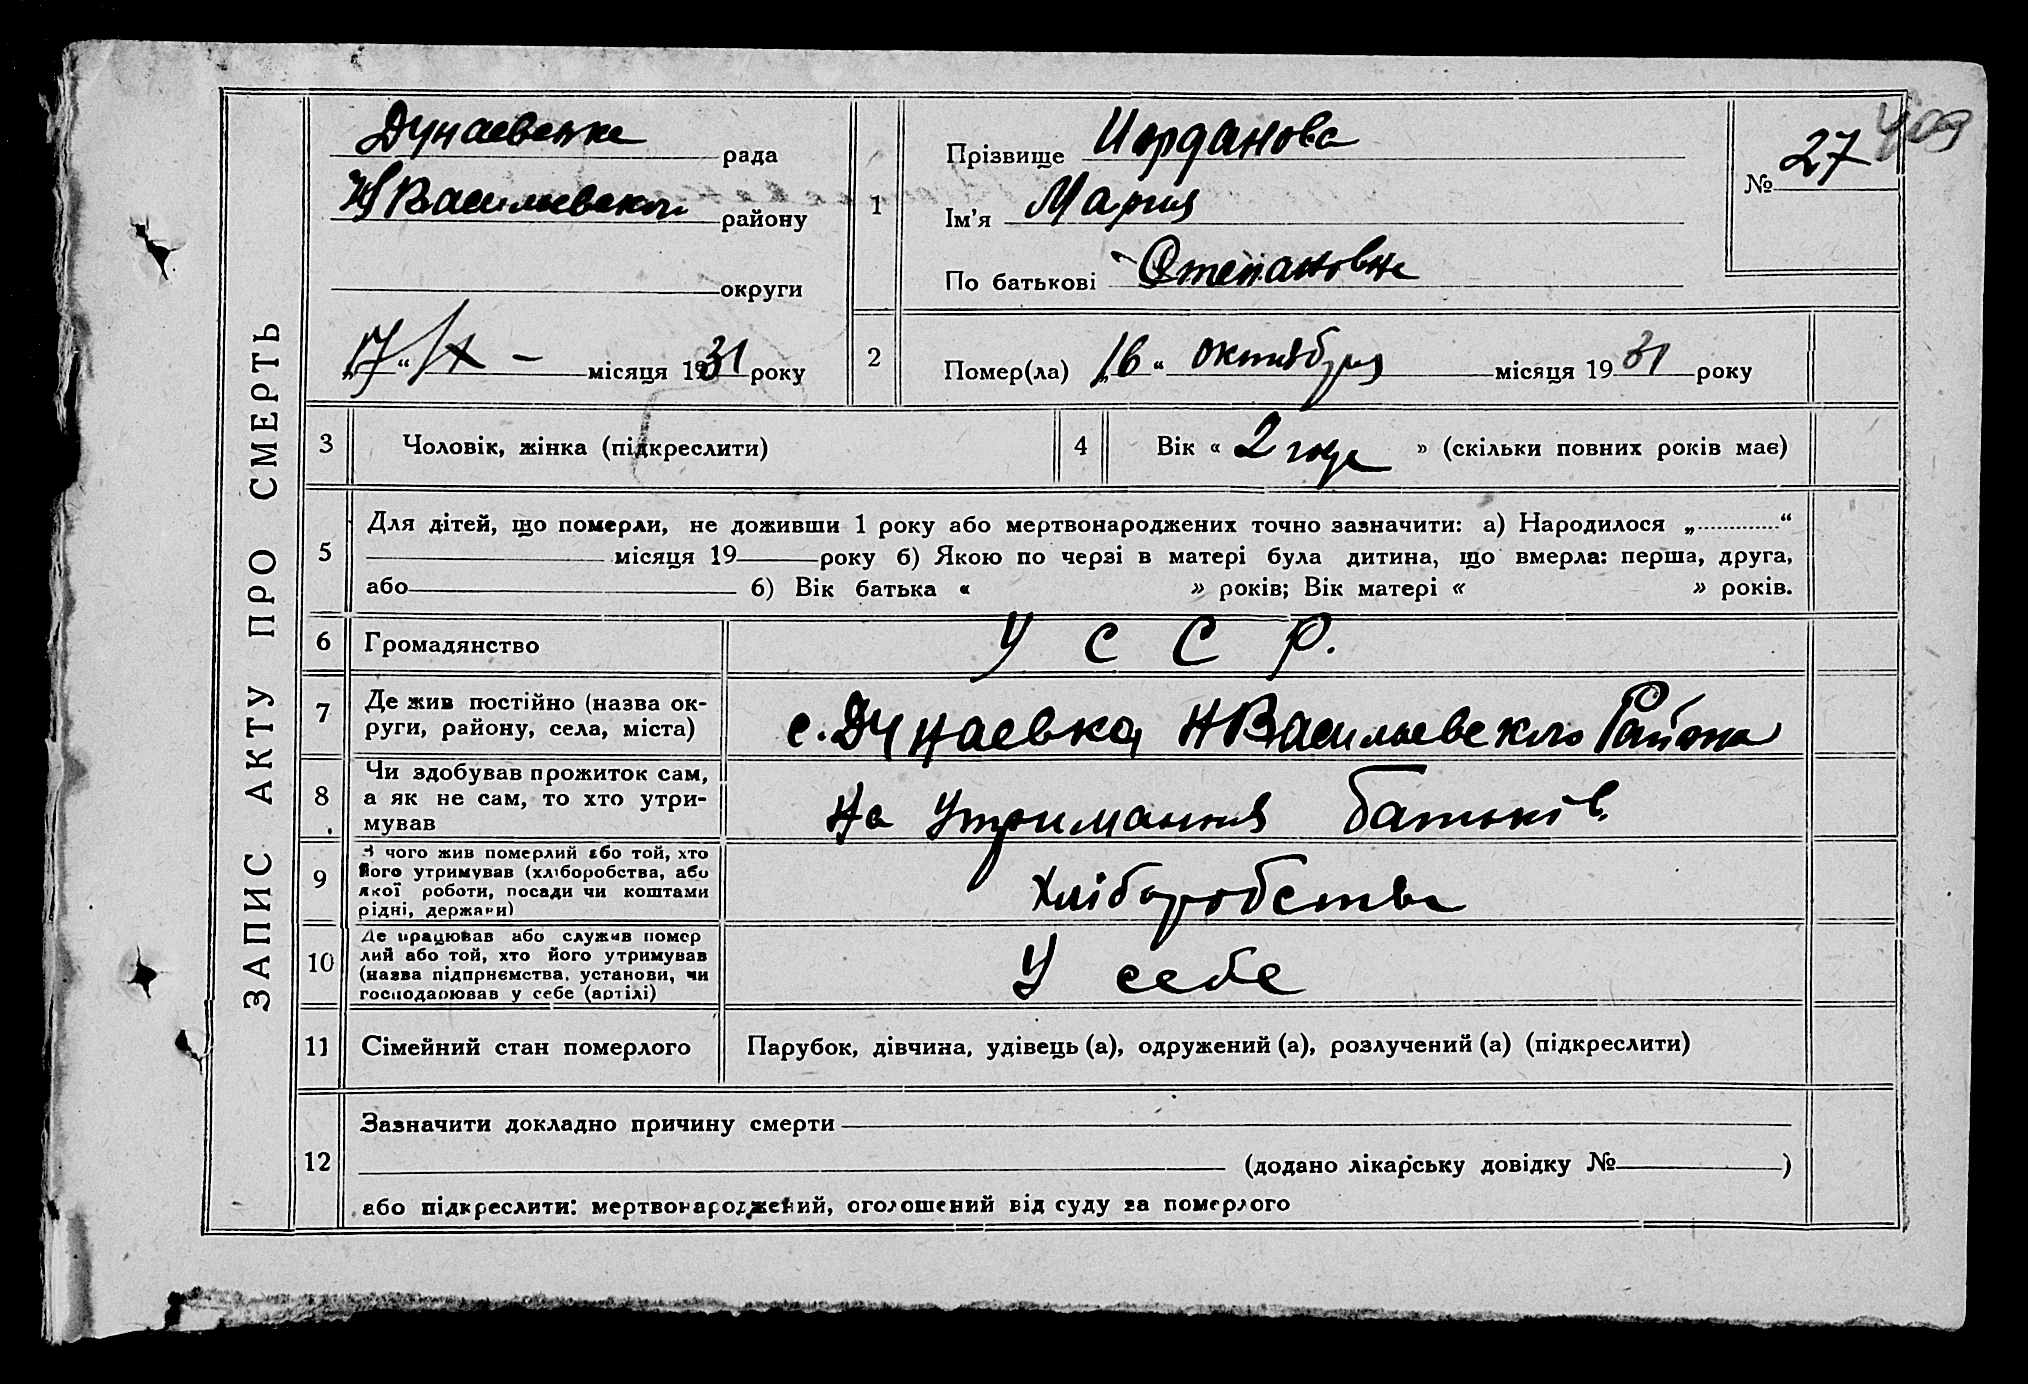 ЗАПИС АКТУ ПРО СМЕРТЬ
Дунаевська рада
НВасильевского району
округи
„17“ /X – місяця 1931 року
1
Прізвище Иорданова
Ім’я Мария
По батькові Степановна
№ 27
409
2
Помер(ла) „16“ октября місяця 1931 року
3 Чоловік, жінка (підкреслити)
4 Вік « 2 года » (скільки повних років має)
5 Для дітей, що померли, не доживши 1 року або мертвонароджених точно зазначити: а) Народилося „............“
місяця 19 року б) Якою по черзі в матері була дитина, що вмерла: перша, друга,
або б) Вік батька « » років; Вік матері « » років.
6 Громадянство У С С Р.
7 Де жив постійно (назва ок-
руги, району, села, міста)
с. Дунаевка, НВасильевского Района
8 Чи здобував прожиток сам,
а як не сам, то хто утри-
мував
На утримання батьків.
9 З чого жив померлий або той, хто
його утримував (хліборобства, або
якої роботи, посади чи коштами
рідні, держави)
Хліборобства
10 Де працював або служив помер
лий або той, хто його утримував
(назва підприємства, установи, чи
господарював у себе (артілі)
У себе
11 Сімейний стан померлого Парубок, дівчина, удівець (а), одружений (а), розлучений (а) (підкреслити)
12 Зазначити докладно причину смерти
(додано лікарську довідку № )
або підкреслити: мертвонароджений, оголошений від суду за померлого